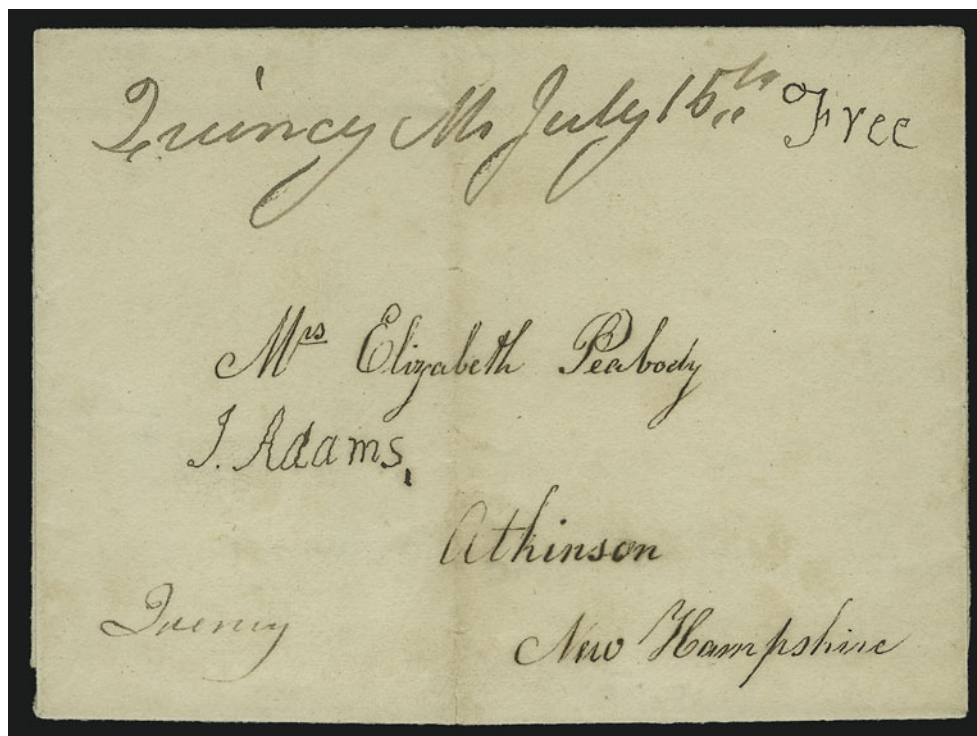 Quincy Ms July 15th Free
Mrs Elizabeth Peabody
J. Adams,
Atkinson
Quincy
New Hampshire